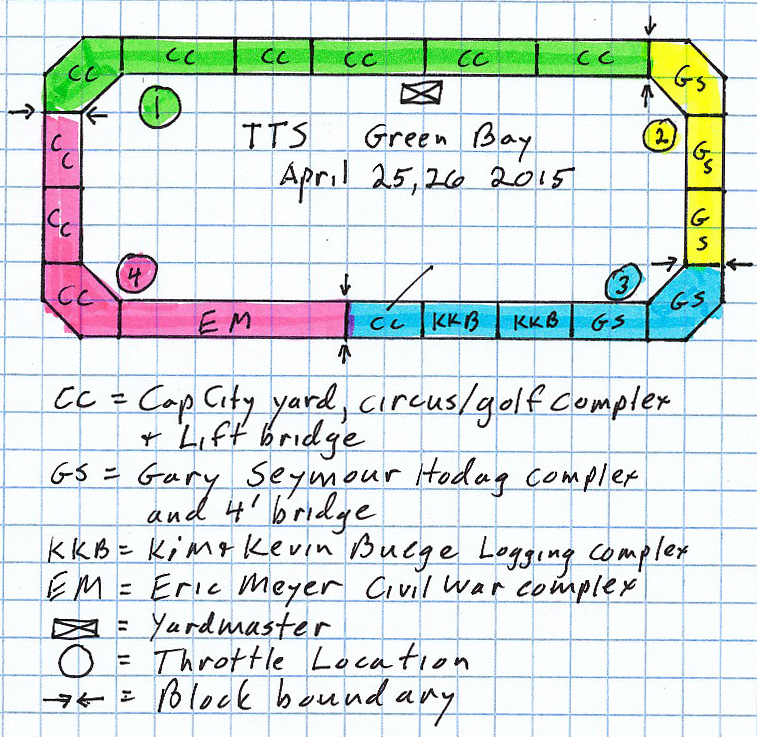 CC CC CC CC CC CC CC GS
1
TTS Green Bay
2
CC
GS
April 25,26 2015
CC
GS
4
3
CC
EM
CC
KKB
KKB
GS
GS
CC = Cap City yard, circus/golf complex
+ Lift bridge
GS = Gary Seymour Hodag complex
and 4' bridge
KKB = Kim + Kevin Buege Logging complex
EM = Eric Meyer Civil War complex
= Yardmaster
= Throttle Location
→← = Block boundary